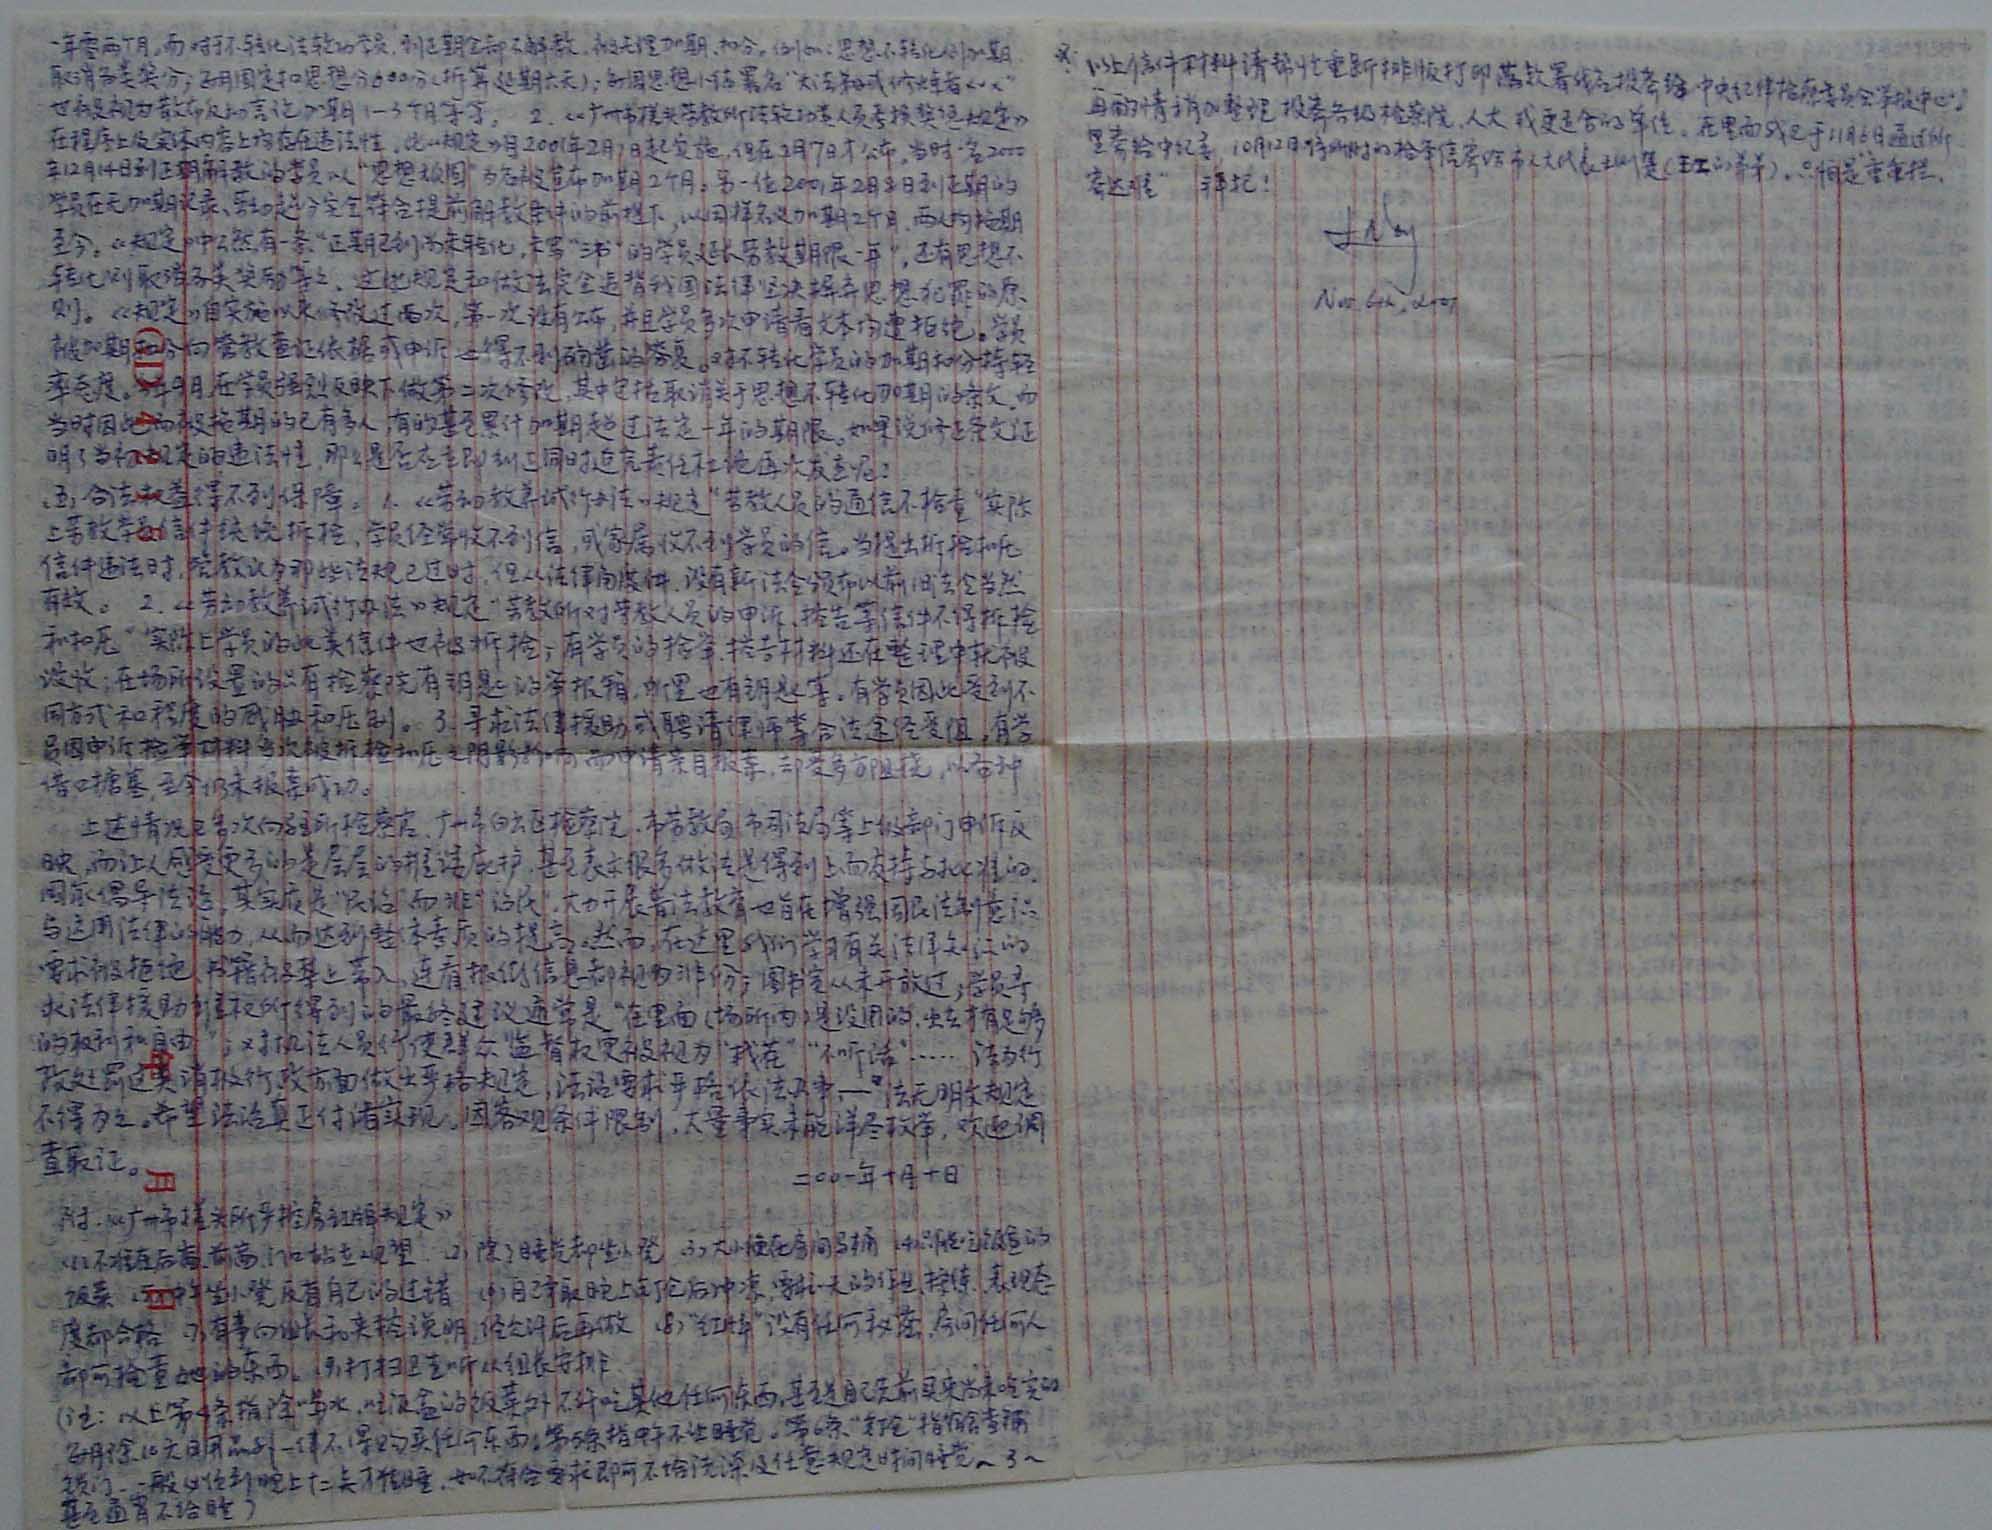 一年零两个月。而对于不转化法轮功学员,到正期全部不解教,被无理加期、扣分。例如:思想不转化则加期
取消各类奖分;每月固定扣思想分600分(折算延期六天);每周思想小结署名"大法弟子或修炼者×××"
也被视为散布反动言论加期1-3个月等等。 2.《广州市槎头劳教所法轮功类人员考核奖惩规定》
在程序上及实体内容上均存在违法性。此《规定》自2001年2月1日起实施,但在2月7日才公布。当时一名2000
年12月14日到正期解教的学员以"思想顽固"为名被宣布加期2个月。另一位2001年2月3日到正期的
学员在无加期记录、劳动超分完全符合提前解教条件的前提下,以同样名义加期2个月,两人均拖期
至今。《规定》中公然有一条"正期已到尚未转化,未写"三书"的学员延长劳教期限一年",还有思想不
转化则取消各类奖励等等。这些规定和做法完全违背我国法律坚决摒弃思想犯罪的原
则。《规定》自实施以来修改过两次,第一次没有公布,并且学员多次申请看文本均遭拒绝。学员
被加期扣分向管教查证依据或申诉也得不到确凿的答复。对不转化学员的加期扣分持轻
率态度。今年9月在学员强烈反映下做第二次修改,其中包括取消关于思想不转化加期的条文,而
当时因此而被拖期的已有多人,有的甚至累计加期超过法定一年的期限。如果说修正条文证
明了当初规定的违法性,那么是否应立即纠正同时追究责任杜绝再次发生呢?
(五)合法权益得不到保障。1.《劳动教养试行办法》规定"劳教人员的通信不检查"实际
上劳教学员信件统统拆检,学员经常收不到信,或家属收不到学员的信。当提出拆检扣压
信件违法时,管教认为那些法规已过时,但从法律角度讲,没有新法令颁布以前旧法令当然
有效。 2.《劳动教养试行办法》规定"劳教所对劳教人员的申诉、控告等信件不得拆检
和扣压"实际上学员的此类信件也被拆检;有学员的检举、控告材料还在整理中就被
没收;在场所设置的只有检察院有钥匙的举报箱,所里也有钥匙等。有学员因此受到不
同方式和程度的威胁和压制。 3.寻求法律援助或聘请律师等合法途径受阻。有学
员因申诉检举材料多次被拆检扣压之阴影影响而申请亲自报案,却受多方阻挠,以各种
借口搪塞,至今仍未报案成功。
上述情况已多次向驻所检察官、广州市白云区检察院、市劳教局、市司法局等上级部门申诉反
映,而让人感受更多的是层层的推诿庇护,甚至表示很多做法是得到上面支持与批准的。
国家倡导法治,其实质是"民治"而非"治民",大力开展普法教育也旨在增强国民法制意识
与运用法律的能力,从而达到整体素质的提高。然而,在这里我们学习有关法律知识的
要求被拒绝,书籍被禁止带入,连看报纸信息都视为非份;图书室从未开放过;学员寻
求法律援助维权所得到的最终建议通常是"在里面(场所内)是没用的,出去才有足够
的权利和自由";对执法人员行使群众监督权更被视为"找茬""不听话"…… 法为行
政处罚这类消极行政方面做出严格规定,法治要求严格依法办事,——"法无明文规定
不得为之"。希望法治真正付诸实现。因客观条件限制,大量事实未能详尽枚举,欢迎调
查取证。
二〇〇一年十月十日
附:《广州市槎头所严控房红牌规定》
(1)不准在后窗、前窗、门口站立观望 (2)除了睡觉都坐小凳 (3)大小便在房间马桶 (4)只能吃饭盒的
饭菜 (5)中午坐小凳反省自己的过错 (6)自己争取晚上封仓后冲凉,要求一天的作业、操练、表现态
度都合格 (7)有事向组长和夹控说明,经允许后再做 (8)"红牌"没有任何秘密,房间任何人
都可检查他的东西。 (9)打扫卫生听从组长安排
(注:以上第4条指除喝水、吃饭盒的饭菜外不许吃其他任何东西,甚至是自己先前买来尚未吃完的
每月除10元日用品外一律不得购买任何东西。第5条指中午不让睡觉。第6条"封仓"指宿舍查铺
锁门,一般必住到晚上十二点才准睡,如不符合要求即可不给洗澡及任意规定时间睡觉 ~3~
甚至通宵不给睡)
※:以上信件材料请帮忙重新排版打印落款署我名投寄给"中央纪律检察委员会举报中心"。
另酌情请加整理投寄各级检察院、人大或更适合的单位。在里面我已于11月6日通过所
里寄给中纪委,10月12日将所附的检举信寄给市人大代表。只怕是"重重拦、
寄达难" 拜托!
Nov 6th, 2001